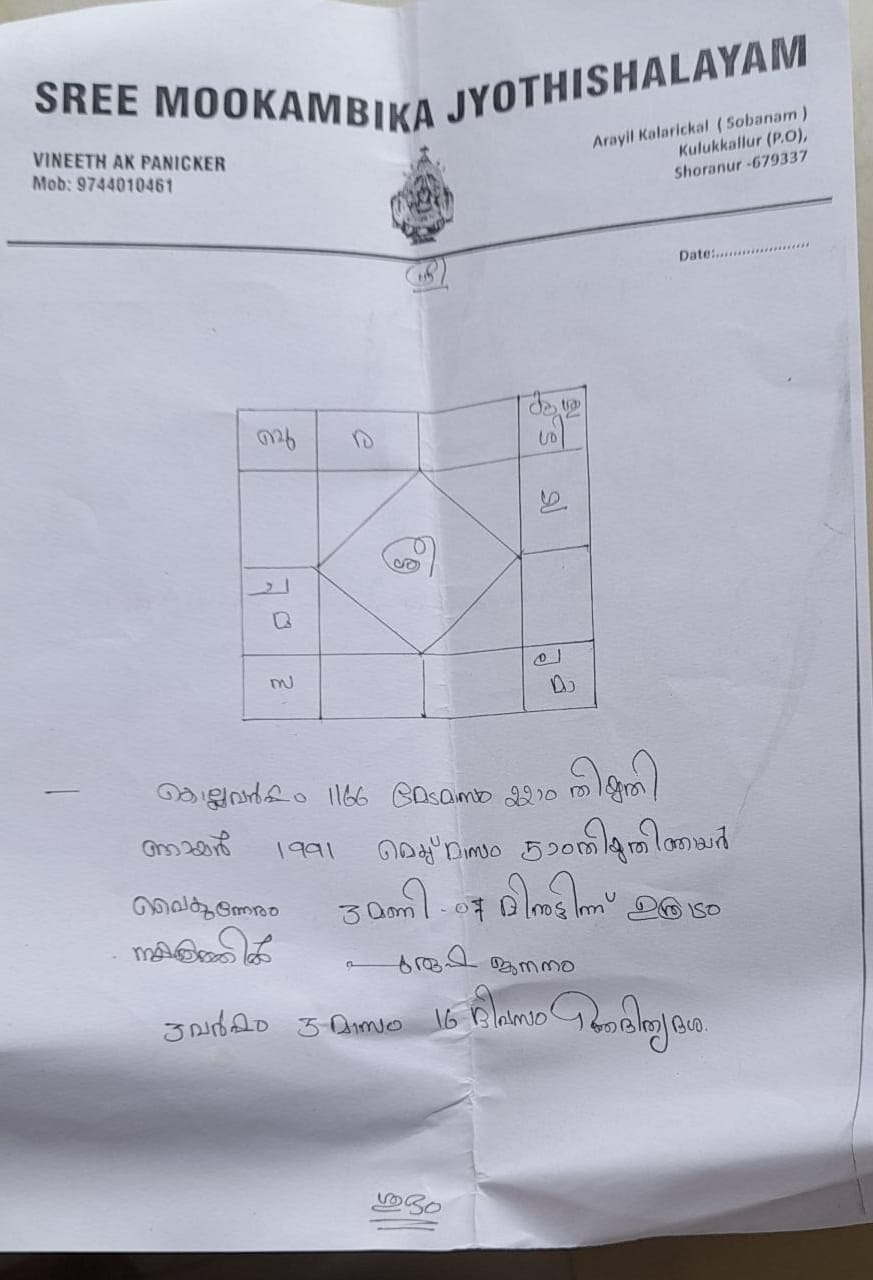 SREE MOOKAMBIKA JYOTHISHALAYAM
VINEETH AK PANICKER
Mob: 9744010461
Arayil Kalarickal ( Sobanam )
Kulukkallur (P.O),
Shoranur -679337
Date:.....................
ശ്രീ
ബു ര
ശി
ഗു
ച
മ
സ
ല
മാ
കൊല്ലവർഷം 1166 മേടമാസം 22ാം തിയ്യതി
1991 മെയ് മാസം 5ാം തിയ്യതി ഞായർ
വൈകുന്നേരം 3 മണി 07 മിനുട്ടിന് ഉത്രാടം
നക്ഷത്രത്തിൽ പുരുഷ ജനനം
3 വർഷം 3 മാസം 16 ദിവസം ആദിത്യദശ.
ശുഭം